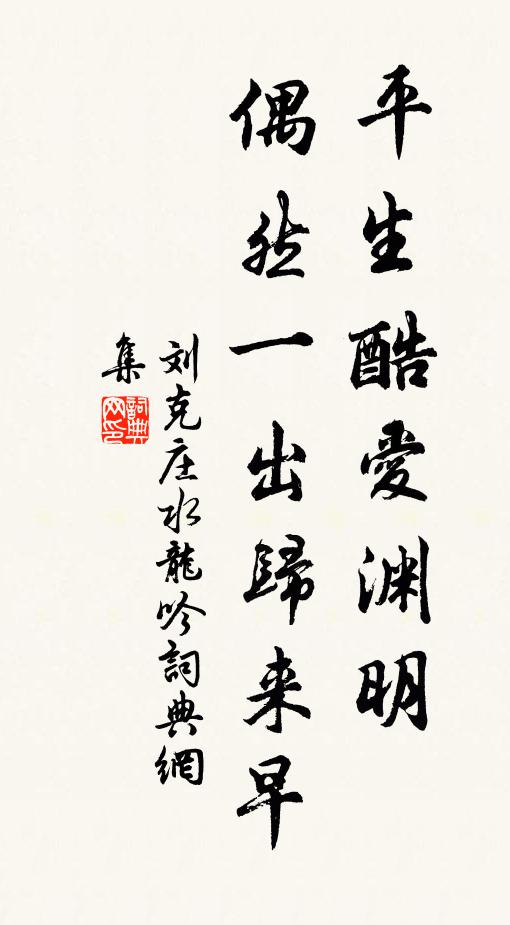 平生酷愛渊明
偶然一出歸来早
刘克庄水龍吟詞典網
集
詞典網印